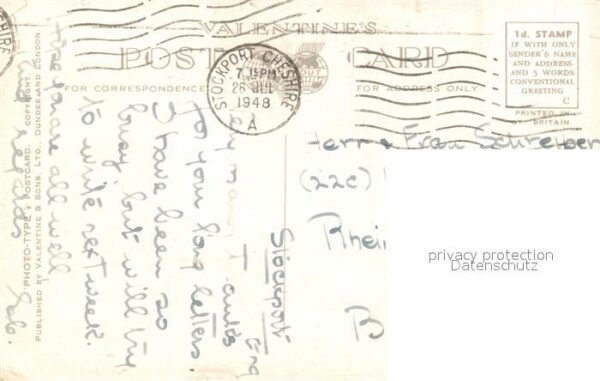 VALENTINE'S
POST CARD
FOR CORRESPONDENCE
FOR ADDRESS ONLY
STOCKPORT CHESHIRE
7.15PM
26 JUL
1948
A
1d. STAMP
IF WITH ONLY
SENDER'S NAME
AND ADDRESS
AND 5 WORDS
CONVENTIONAL
GREETING
C
PRINTED IN
BRITAIN
Herr & Frau Schreiber
(22c)
Rhein
B
Stockport
Eng
Many Thanks
to you long letters.
I have been so
busy but will try
to write next week.
Hope you are all well
Kind regards
PHOTO-TYPE POSTCARD. COPYRIGHT
PUBLISHED BY VALENTINE & SONS, LTD., DUNDEE AND LONDON
privacy protection
Datenschutz